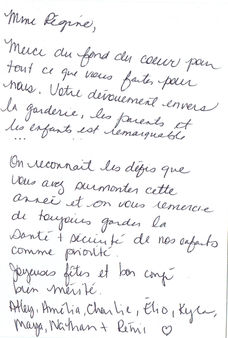 Mme Régine,
Merci du fond du coeur pour
tout ce que vous faites pour
nous. Votre dévouement envers
la garderie, les parents et
les enfants est remarquable
...
On reconnait les défis que
vous avez surmonter cette
année et on vous remercie
de toujours garder la
santé + sécurité de nos enfants
comme priorité.
Joyeuses fêtes et bon congé
bien mérité.
Atley, Amélia, Charlie, Élio, Kyla,
Maya, Nathan + Rémi ♡